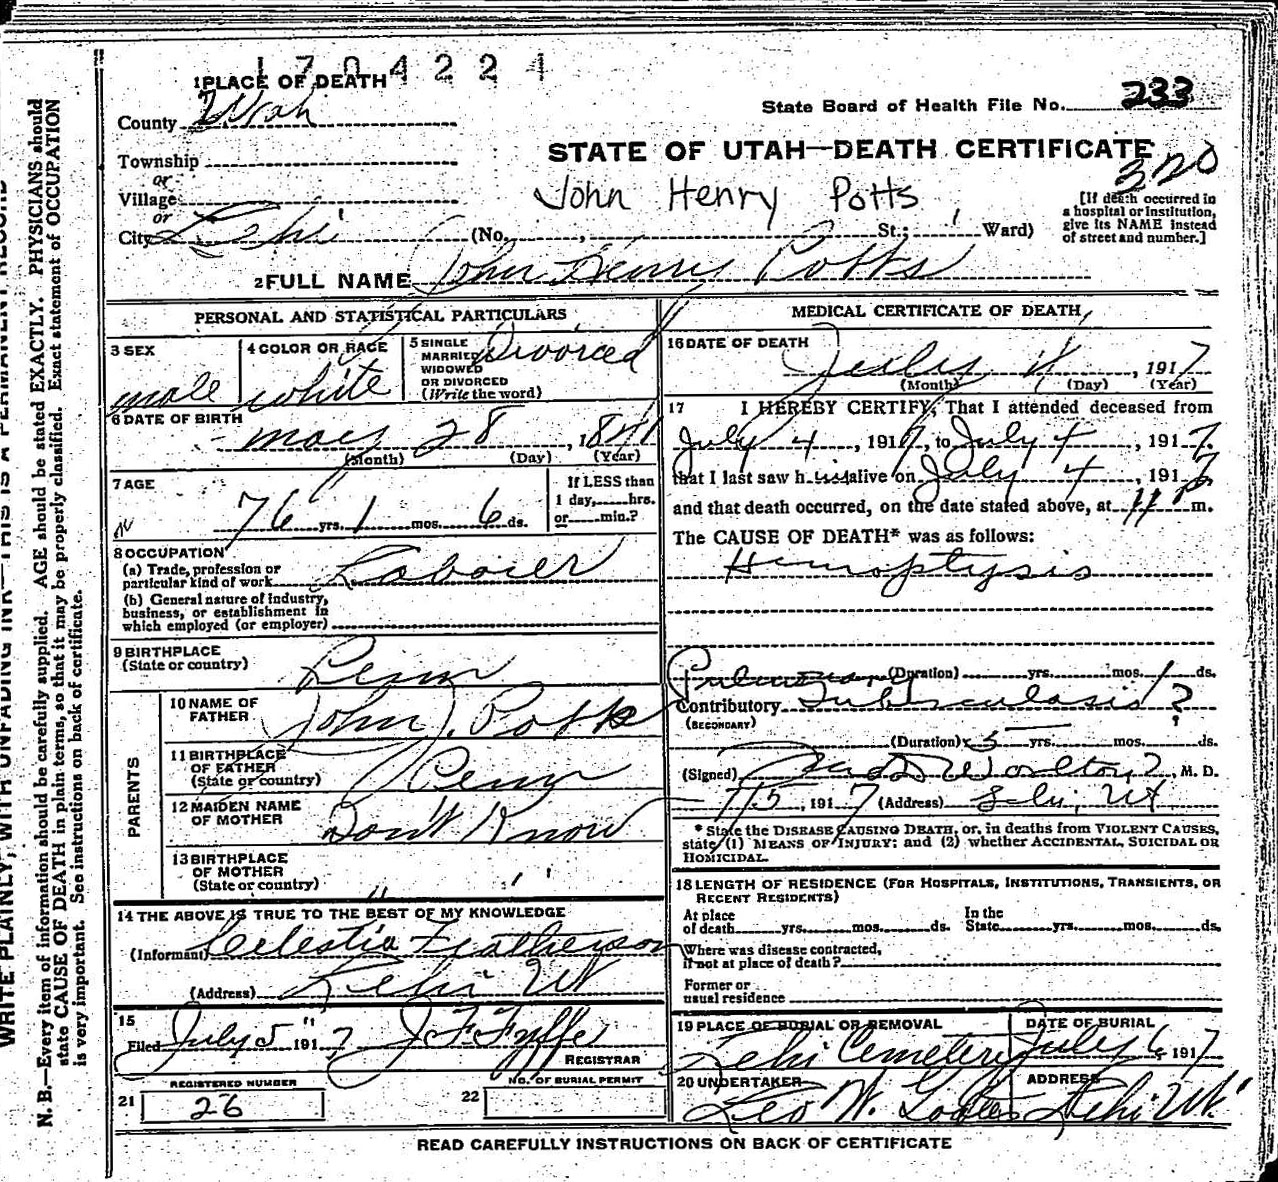 1704221
1 PLACE OF DEATH
State Board of Health File No. 233
County Utah
STATE OF UTAH—DEATH CERTIFICATE
320
Township
or
Village
or
John Henry Potts
[If death occurred in
a hospital or institution,
give its NAME instead
of street and number.]
City Lehi (No. , St.; Ward)
2 FULL NAME John Henry Potts
PERSONAL AND STATISTICAL PARTICULARS
3 SEX
male
4 COLOR OR RACE
white
5 SINGLE
MARRIED
WIDOWED
OR DIVORCED
(Write the word)
Divorced
6 DATE OF BIRTH
may 28, 1841
(Month) (Day) (Year)
7 AGE
76 yrs. 1 mos. 6 ds.
If LESS than
1 day, hrs.
or min.?
8 OCCUPATION
(a) Trade, profession or
particular kind of work Laborer
(b) General nature of industry,
business, or establishment in
which employed (or employer)
9 BIRTHPLACE
(State or country) Penn
PARENTS
10 NAME OF
FATHER John J. Potts
11 BIRTHPLACE
OF FATHER
(State or country) Penn
12 MAIDEN NAME
OF MOTHER Don't Know
13 BIRTHPLACE
OF MOTHER
(State or country) " "
14 THE ABOVE IS TRUE TO THE BEST OF MY KNOWLEDGE
(Informant) Celestia Featherson
(Address) Lehi Ut
15
Filed July 5 1917 J F Fyffe
REGISTRAR
REGISTERED NUMBER
21 26
NO. OF BURIAL PERMIT
22
MEDICAL CERTIFICATE OF DEATH
16 DATE OF DEATH
July 4, 1917
(Month) (Day) (Year)
17 I HEREBY CERTIFY, That I attended deceased from
July 4, 1917, to July 4, 1917.
that I last saw h alive on July 4, 1917
and that death occurred, on the date stated above, at 11 P m.
The CAUSE OF DEATH* was as follows:
Hemoptysis
Pulmonary (Duration) yrs. mos. 1 ds.
Contributory Tuberculosis ?
(SECONDARY)
(Duration) 5 yrs. mos. ds.
(Signed) Worlton, M. D.
7/5, 1917 (Address) Lehi, Ut
* State the DISEASE CAUSING DEATH, or, in deaths from VIOLENT CAUSES,
state (1) MEANS OF INJURY; and (2) whether ACCIDENTAL, SUICIDAL OR
HOMICIDAL.
18 LENGTH OF RESIDENCE (FOR HOSPITALS, INSTITUTIONS, TRANSIENTS, OR
RECENT RESIDENTS)
At place
of death yrs. mos. ds.
In the
State yrs. mos. ds.
Where was disease contracted,
if not at place of death?
Former or
usual residence
19 PLACE OF BURIAL OR REMOVAL
Lehi Cemetery
DATE OF BURIAL
July 6 1917
20 UNDERTAKER
Leo W. Goates
ADDRESS
Lehi Ut.
READ CAREFULLY INSTRUCTIONS ON BACK OF CERTIFICATE
WRITE PLAINLY, WITH UNFADING INK—THIS IS A PERMANENT RECORD
N. B.—Every item of information should be carefully supplied. AGE should be stated EXACTLY. PHYSICIANS should
state CAUSE OF DEATH in plain terms, so that it may be properly classified. Exact statement of OCCUPATION
is very important. See instructions on back of certificate.